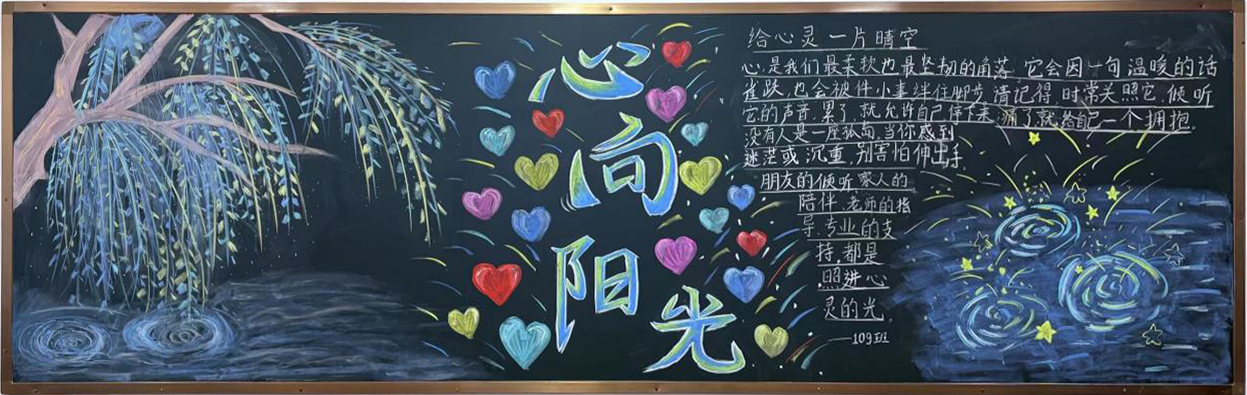 心向阳光
给心灵一片晴空
心是我们最柔软也最坚韧的角落.它会因一句温暖的话
雀跃.也会被件小事绊住脚步.请记得.时常关照它.倾听
它的声音.累了.就允许自己停下来.痛了就给自己一个拥抱.
没有人是一座孤岛.当你感到
迷茫或沉重.别害怕伸出手
朋友的倾听家人的
陪伴.老师的指
导.专业的支
持.都是
照进心
灵的光.
——109班